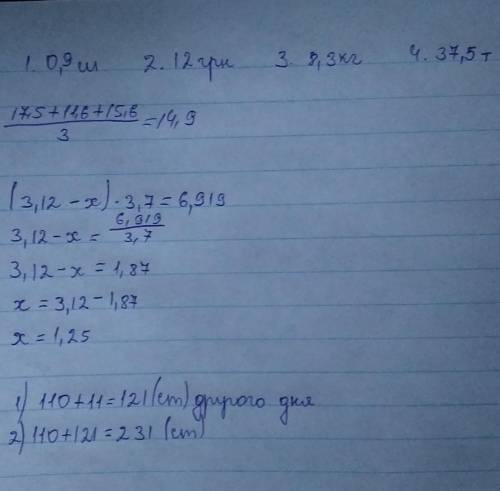 1. 0,9 м 2. 12 грн 3. 8,3 кг 4. 37,5 т
(17,5+11,6+15,6)/3 = 14,9
(3,12 - x) · 3,7 = 6,919
3,12 - x = 6,919/3,7
3,12 - x = 1,87
x = 3,12 - 1,87
x = 1,25
1) 110 + 11 = 121 (ст) другого дня
2) 110 + 121 = 231 (ст)